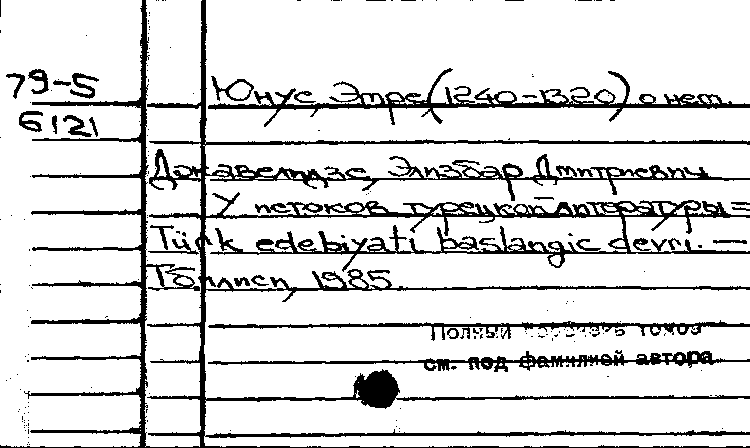 79-5
6121
Юнус, Эмре (1240-1320) о нем.
Джавелидзе, Элизбар Дмитриевич
У истоков турецкой литературы =
Türk edebiyati baslangic devri. —
Тбилиси, 1985.
Полный перечень томов
см. под фамилией автора